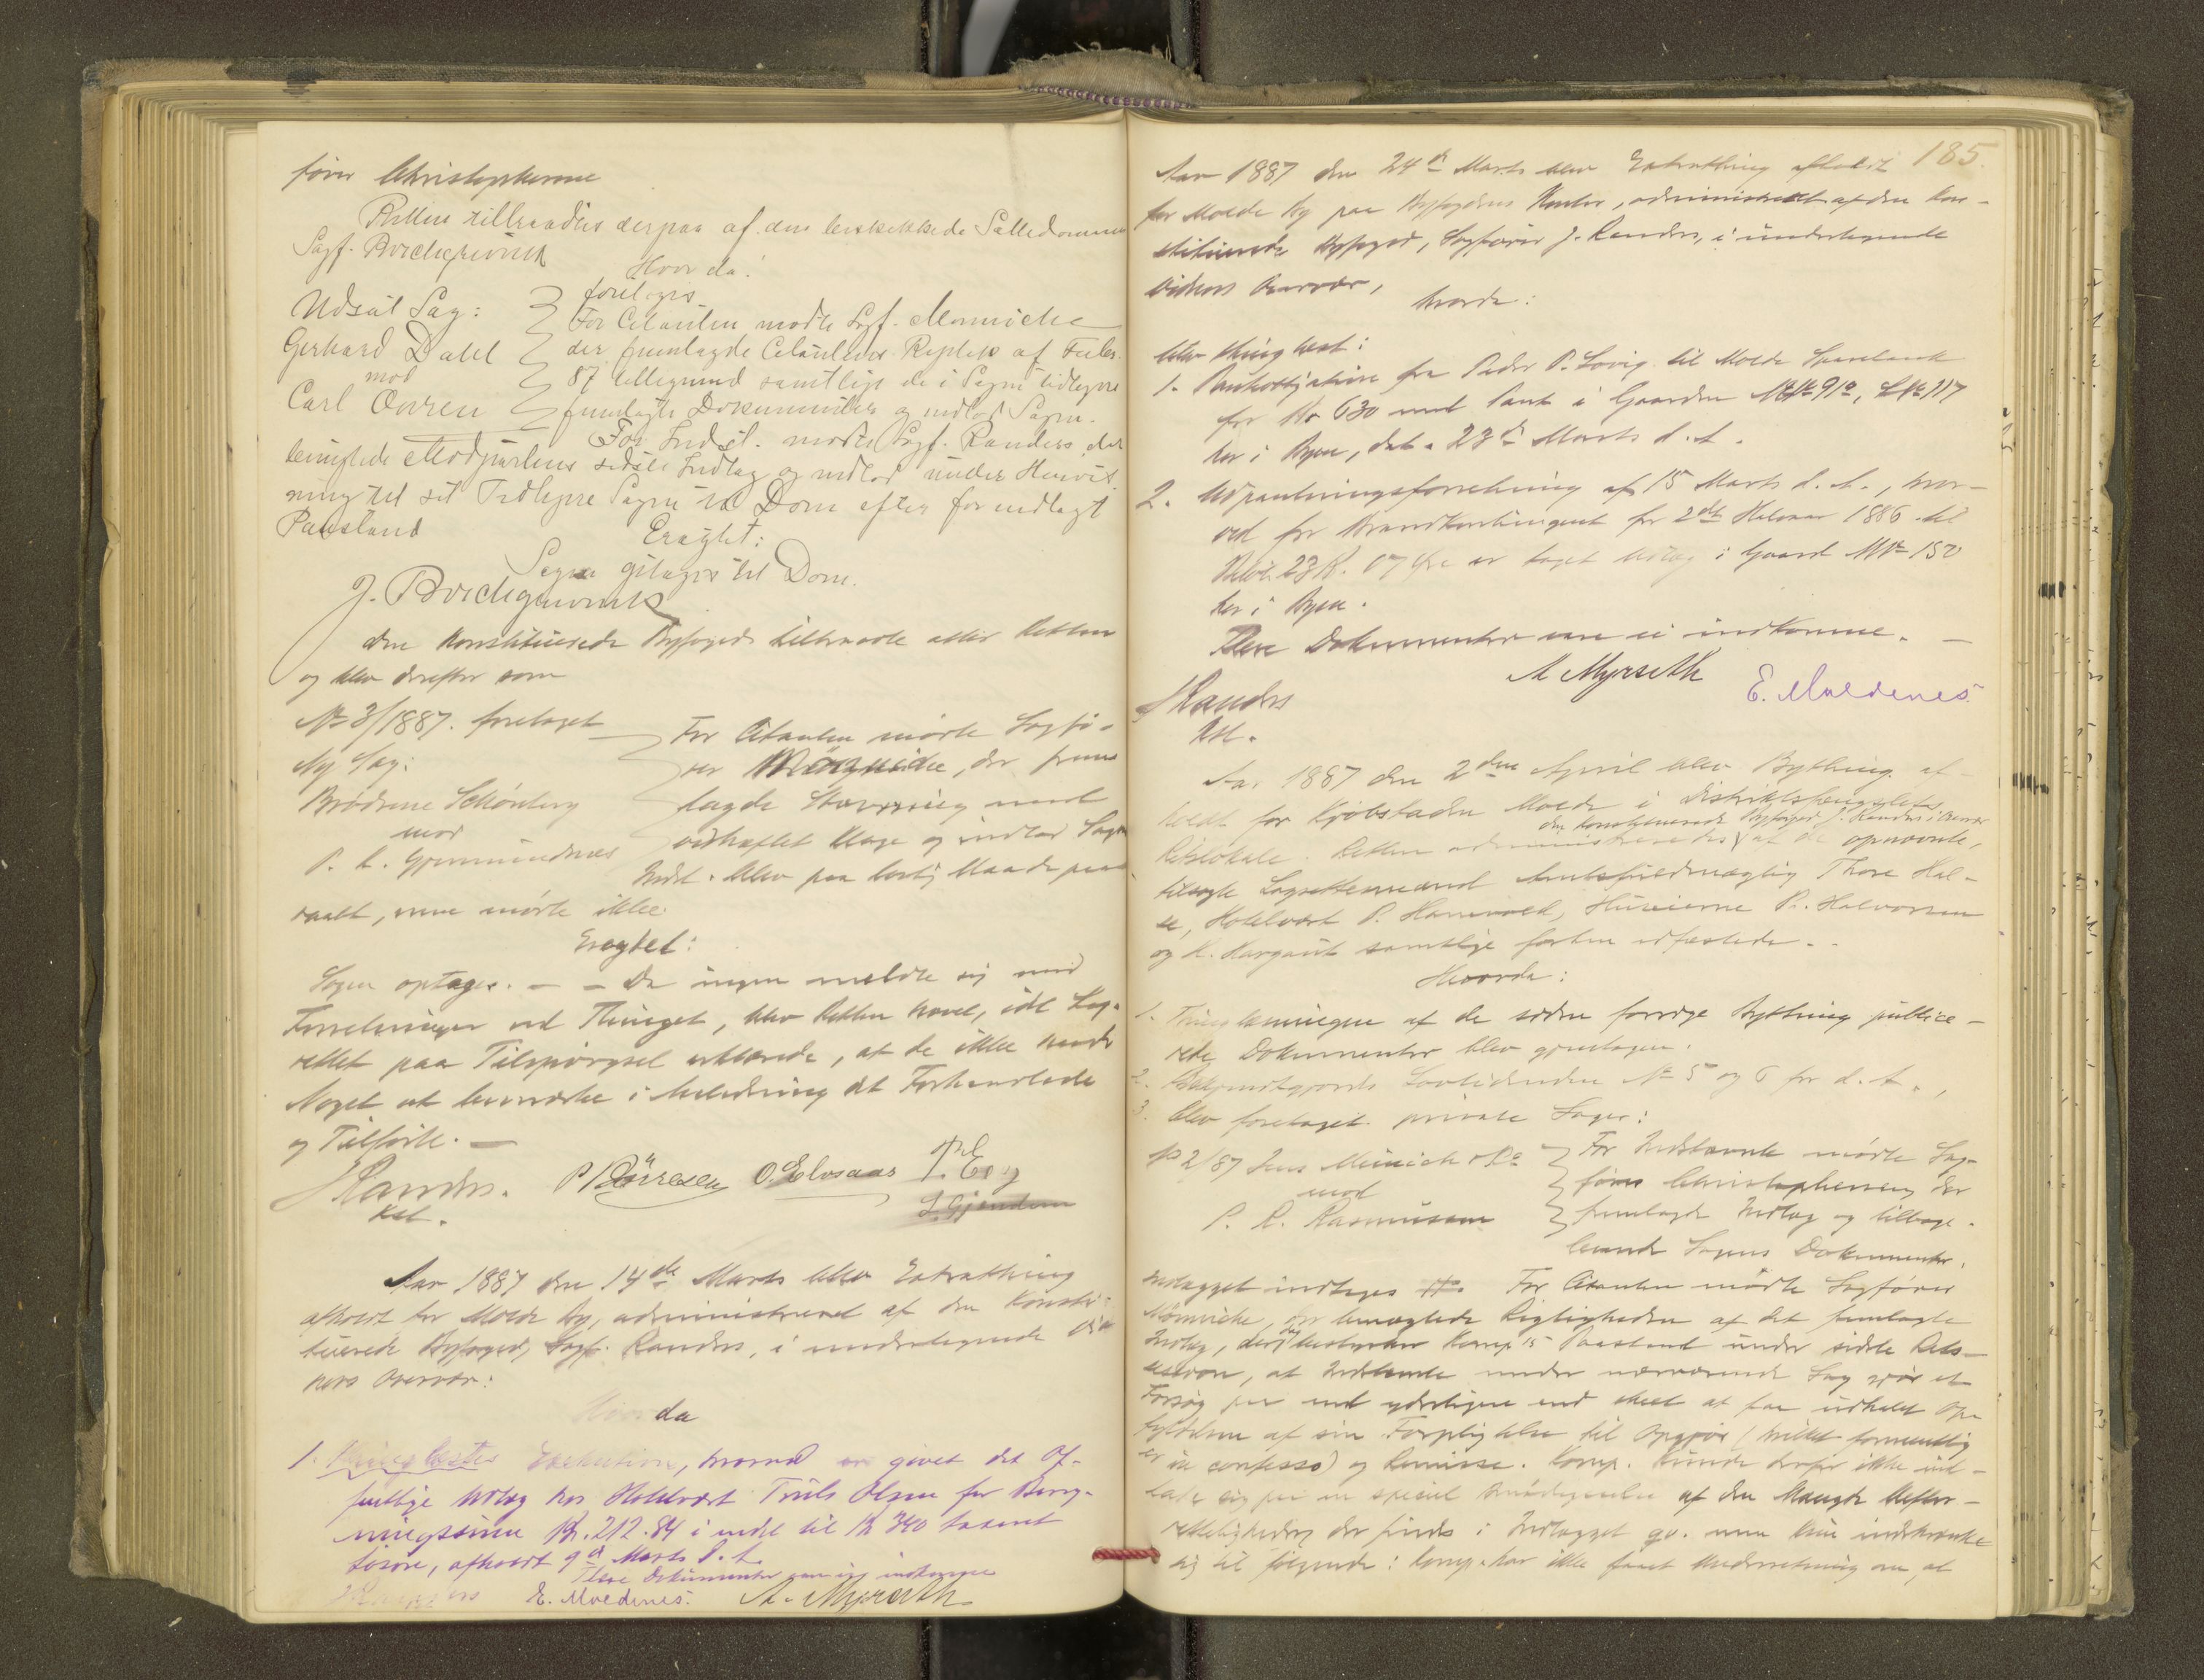 fører Christophersen
Retten tilbraadtes derpaa af den beskikkede Sættedommer
Sagf. Bordegrevink
Hvor da:
Udsat Sag:
foretoges
For Citanten mødte Sagf. Mønniche
Gerhard Dahl
der fremlagde Citantens Replik af Febr.
mod
87 tilligemed samtlige de i Sagen tidligere
Carl Owren
fremlagte Dokumenter og indlod Sagen.
For Indst. mødte Sagf. Randers der
benegtede Modpartens sidste Indlæg og indlod under Henvis
ning til sit Tidligere Sagen til Dom efter før nedlagt
Paastand
Eragtet:
Sagen optages til Dom.
J. Bordegrevink
Den konstituerede Byfoged tiltraadte atter Retten
og blev derefter som
No 3/1887. foretaget
For Citanten mødte Sagfø-
Ny Sag:
rer Mønniche, der frem
Brødrene Schönberg
lagde Stævning med
mod
vedhæftet Klage og indlod Sagen
P. L. Gjermundnæs
Indst. blev paa lovlig Maade paa
raabt, men mødte ikke.
Eragtet:
Sagen optages. — — Da ingen meldte sig med
Forretninger ved Thinget, blev Retten hævet, idet Lag-
rettet paa Tilspørgsel erklærede, at de ikke havde
Noget at bemærke i Anledning det Forhandlede
og Tilførte. —
J Randers. P Börresen O. Elvsaas T. Eeg
Kst. S. Gjendem
Aar 1887 den 14de Marts blev Extrathing
afholdt for Molde By, administreret af den Konsti-
tuerede Byfoged, Sagf. Randers, i undertegnede Vid
ners Overvær:
Hvorda
1. Thinglæstes Exekution, hvorved er givet det Of-
fentlige Udlæg hos Hotelvært Truls Olsen for Bevog-
ningssum Kr. 212.84 i endel til Kr 340 taxeret
Løsøre, afholdt 9d Marts d. A.
Flere Dokumenter var ej indkomne
J Randers E. Moldenes. A. Myrseth
185.
Aar 1887 den 24d Marts blev Extrathing afholdt
for Molde By paa Byfogdens Kontor, administreret af den kon-
stituerede Byfoged, Sagfører J. Randers, i undertegnede
Vidners Overvær,
hvorda:
blev thinglæst:
1. Panteobligation fra Peder P. Lovig til Molde Sparebank
for Kr 630 med Pant i Gaarden MNo 91a, LNo 117
her i Byen, dat. 23d Marts d. A.
2. Udpantningsforretning af 15 Marts d. A., hvor-
ved for Brandkontingent for 2det Halvaar 1886 til
Beløb 23 K. 07 Øre er taget Udlæg i Gaard MNo 150
her i Byen.
Flere Dokumenter vare ei indkomne. —
A Myrseth E. Moldenes.
J Randers
Kst.
Aar 1887 den 2den April blev Bything af-
holdt for Kjøbstaden Molde i Distriktsfængslets
den konstituerede Byfoged J. Randers i Overvær
Retslokale. Retten administreredes af de opnævnte,
tilsagte Lagrettesmænd Amtsfuldmægtig Thore Hal-
se, Hotelvært P. Hammvold, Huseierne P. Halvorsen
og K. Kargaut samtlige forhen edfæstede. -
Hvorda:
1. Thinglæsningen af de siden forrige Bything publice-
rede Dokumenter blev gjentagen.
2. Bekjendtgjordt Lovtidenden No 5 og 6 for d. A.,
3. blev foretaget private Sager:
No 2/87 Jens Meinich & Co
For Indstævnte mødte Sag-
mod
fører Christophersen, der
P. R. Rasmussen
fremlagde Indlæg og tilbage-
leverede Sagens Dokumenter.
Indlægget indtages ##. For Citanten mødte Sagfører
Mønniche, der benægtede Rigtigheden af det fremlagte
Indlæg, der bestyrker Komp's Paastand under sidste Rets-
session, at Indstævnte under nærværende Sag gjør et
Forsøg paa end yderligere end skeet at faa udhalet Op-
fyldelsen af sin Forpligtelse til Opgjør (hvilket formentlig
er in confesso) og Remisse. Komp. kunde derfor ikke ind-
lade sig paa en speciel Imødegaaelse af den Mængde Uefter-
retteligheder der findes i Indlægget qv. men kun indskrænke
sig til følgende: Komp. har ikke faaet Underretning om, at